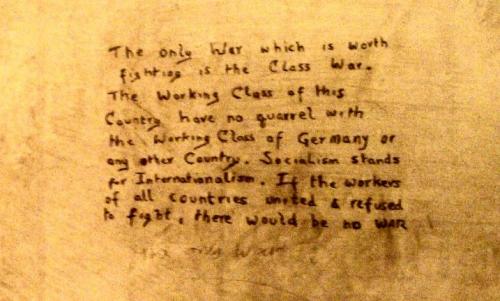 The only War which is worth
fighting is the Class War.
The Working Class of this
Country have no quarrel with
the Working Class of Germany or
any other Country. Socialism stands
for Internationalism. If the workers
of all countries united & refused
to fight, there would be no WAR
War